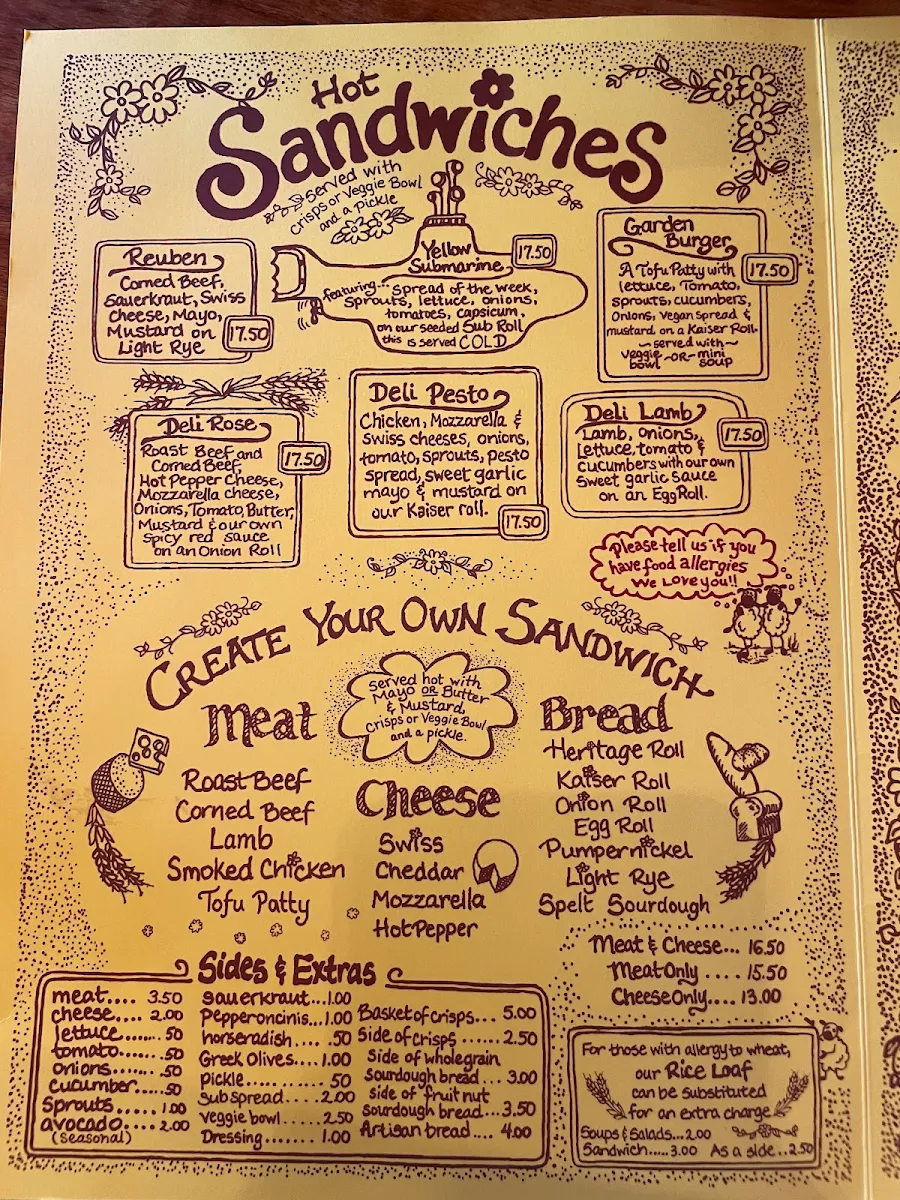 Hot
Sandwiches
served with
crisps or Veggie Bowl
and a pickle
Reuben
Corned Beef,
Sauerkraut, Swiss
Cheese, Mayo,
Mustard on
Light Rye
17.50
Yellow
Submarine
17.50
featuring... spread of the week,
sprouts, lettuce, onions,
tomatoes, capsicum,
on our seeded Sub Roll
this is served COLD
Garden
Burger
17.50
A Tofu Patty with
lettuce, Tomato,
sprouts, cucumbers,
Onions, Vegan spread &
mustard on a Kaiser Roll.
~ served with ~
veggie bowl ~OR~ mini soup
Deli Rose
17.50
Roast Beef and
Corned Beef,
Hot Pepper Cheese,
Mozzarella cheese,
Onions, Tomato, Butter,
Mustard & our own
spicy red sauce
on an Onion Roll
Deli Pesto
Chicken, Mozzarella &
Swiss cheeses, onions,
tomato, sprouts, pesto
spread, sweet garlic
mayo & mustard on
our Kaiser roll.
17.50
Deli Lamb
17.50
Lamb, onions,
Lettuce, tomato &
cucumbers with our own
Sweet garlic sauce
on an Egg Roll.
Please tell us if you
have food allergies
We Love you!!
CREATE YOUR OWN SANDWICH
Served hot with
Mayo OR Butter
& Mustard,
Crisps or Veggie Bowl
and a pickle.
Meat
Roast Beef
Corned Beef
Lamb
Smoked Chicken
Tofu Patty
Cheese
Swiss
Cheddar
Mozzarella
Hot Pepper
Bread
Heritage Roll
Kaiser Roll
Onion Roll
Egg Roll
Pumpernickel
Light Rye
Spelt Sourdough
Meat & Cheese... 16.50
Meat Only .... 15.50
Cheese Only.... 13.00
Sides & Extras
meat.... 3.50
cheese.... 2.00
lettuce...... .50
tomato..... .50
onions...... .50
cucumber.... .50
Sprouts..... 1.00
avocado.... 2.00
(seasonal)
sauerkraut...1.00
Pepperoncinis...1.00
horseradish.... .50
Greek Olives....1.00
pickle......... .50
Sub Spread..... 2.00
veggie bowl..... 2.50
Dressing....... 1.00
Basket of crisps... 5.00
Side of crisps ...... 2.50
side of wholegrain
sourdough bread... 3.00
side of fruit nut
sourdough bread...3.50
Artisan bread.... 4.00
For those with allergy to wheat,
our Rice Loaf
can be substituted
for an extra charge
Soups & Salads...2.00
Sandwich.....3.00 As a side..2.50